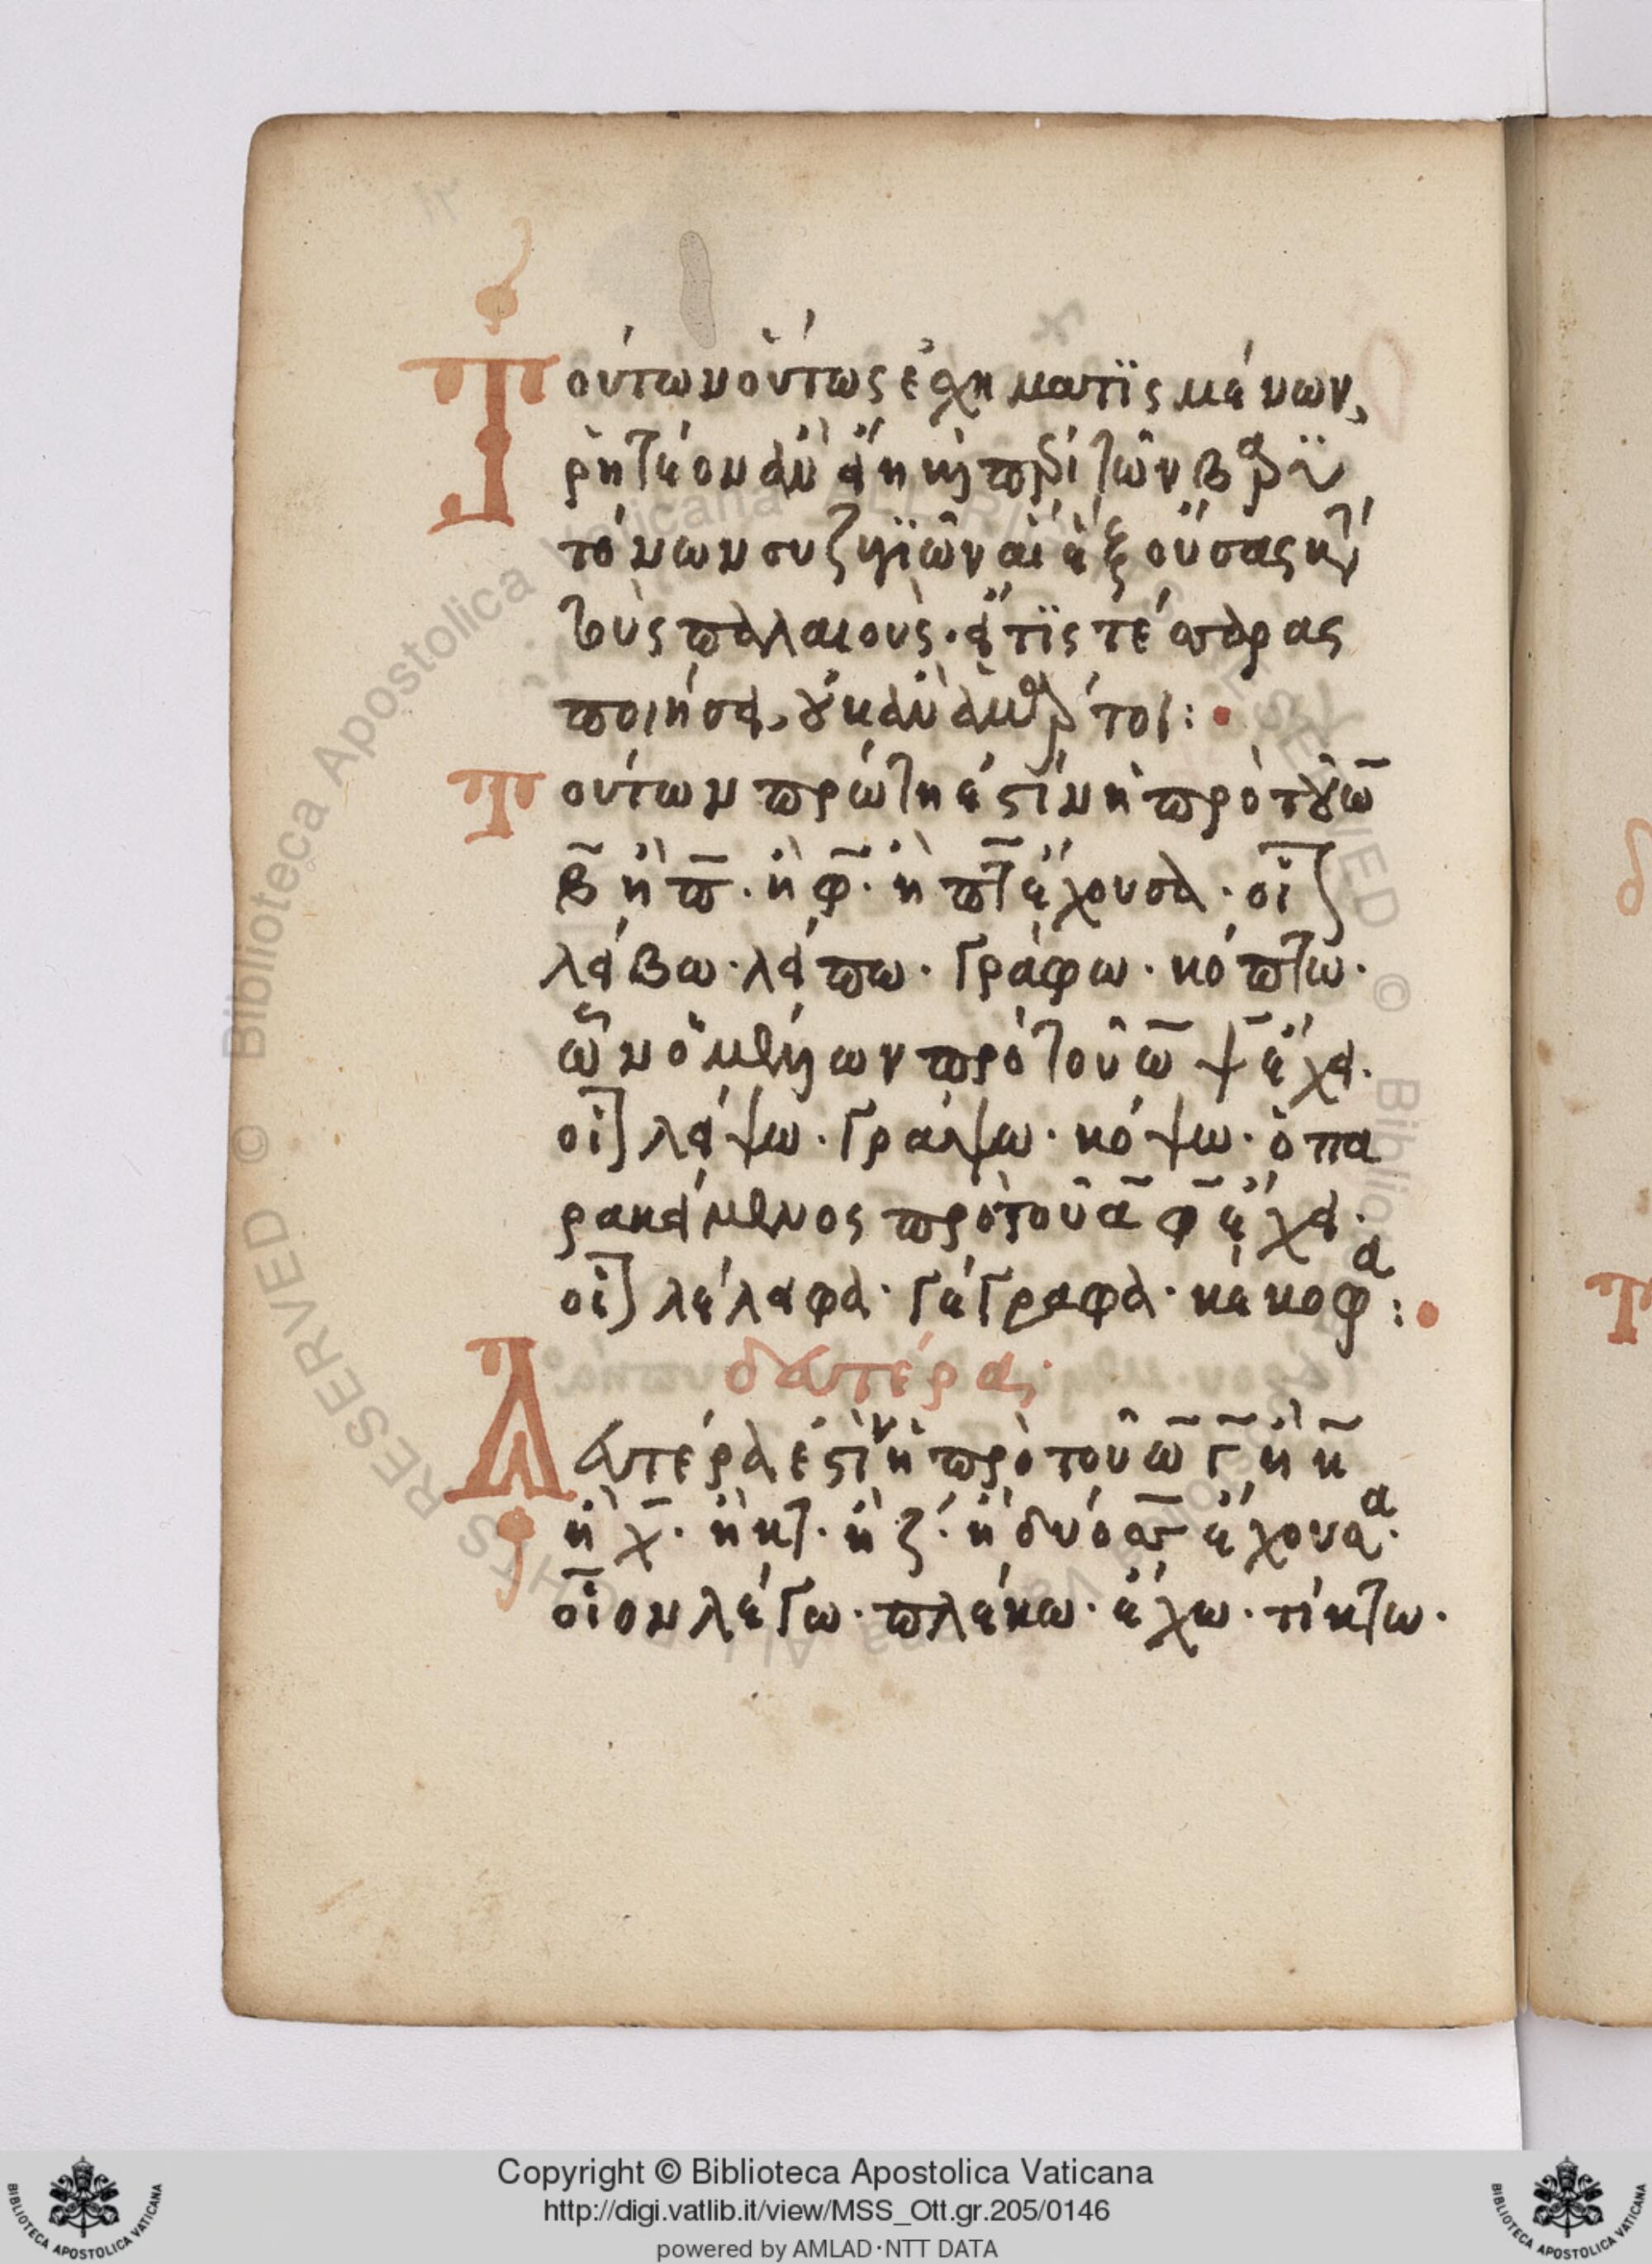 Τούτων οὕτως ἐσχηματϊσμένων,
ῥητέον ἂν εἴη κὴ περὶ τῶν βαρϋ
τόνων συζυγϊῶν αἱ ἓξ οὔσας κατὰ
τοὺς παλαιοὺς. εἴ τϊς τέσσαρας
ποιήσει, οὐκ ἂν ἁμάρτοι:
Τούτων πρώτη ἐστίν ἡ πρὸ τοῦ ω̄
β̄ ἢ π̄. ἢ φ̄. ἢ π̄τ ἔχουσα. οἷ
λείβω. λείπω. γράφω. κόπτω.
ὧν ὁ μέλλων πρὸ τοῦ ω̄ ψ̄ ἔχει.
οἷ λείψω. γράψω. κόψω. ὁ πα
ρακείμενος πρὸ τοῦ ᾱ φ̄ ἔχει.
οἷ λέλειφα. γέγραφα. κέκοφα:
δευτέρας
Δευτέρα ἐστὶν ἡ πρὸ τοῦ ω̄ γ̄ ἢ κ̄
ἢ χ̄. ἢ κτ. ἢ ζ. ἢ δύο σσ ἔχουσα.
οἷον λέγω. πλέκω. ἔχω. τίκτω.
Copyright © Biblioteca Apostolica Vaticana
http://digi.vatlib.it/view/MSS_Ott.gr.205/0146
powered by AMLAD·NTT DATA
BIBLIOTECA APOSTOLICA VATICANA
BIBLIOTECA APOSTOLICA VATICANA